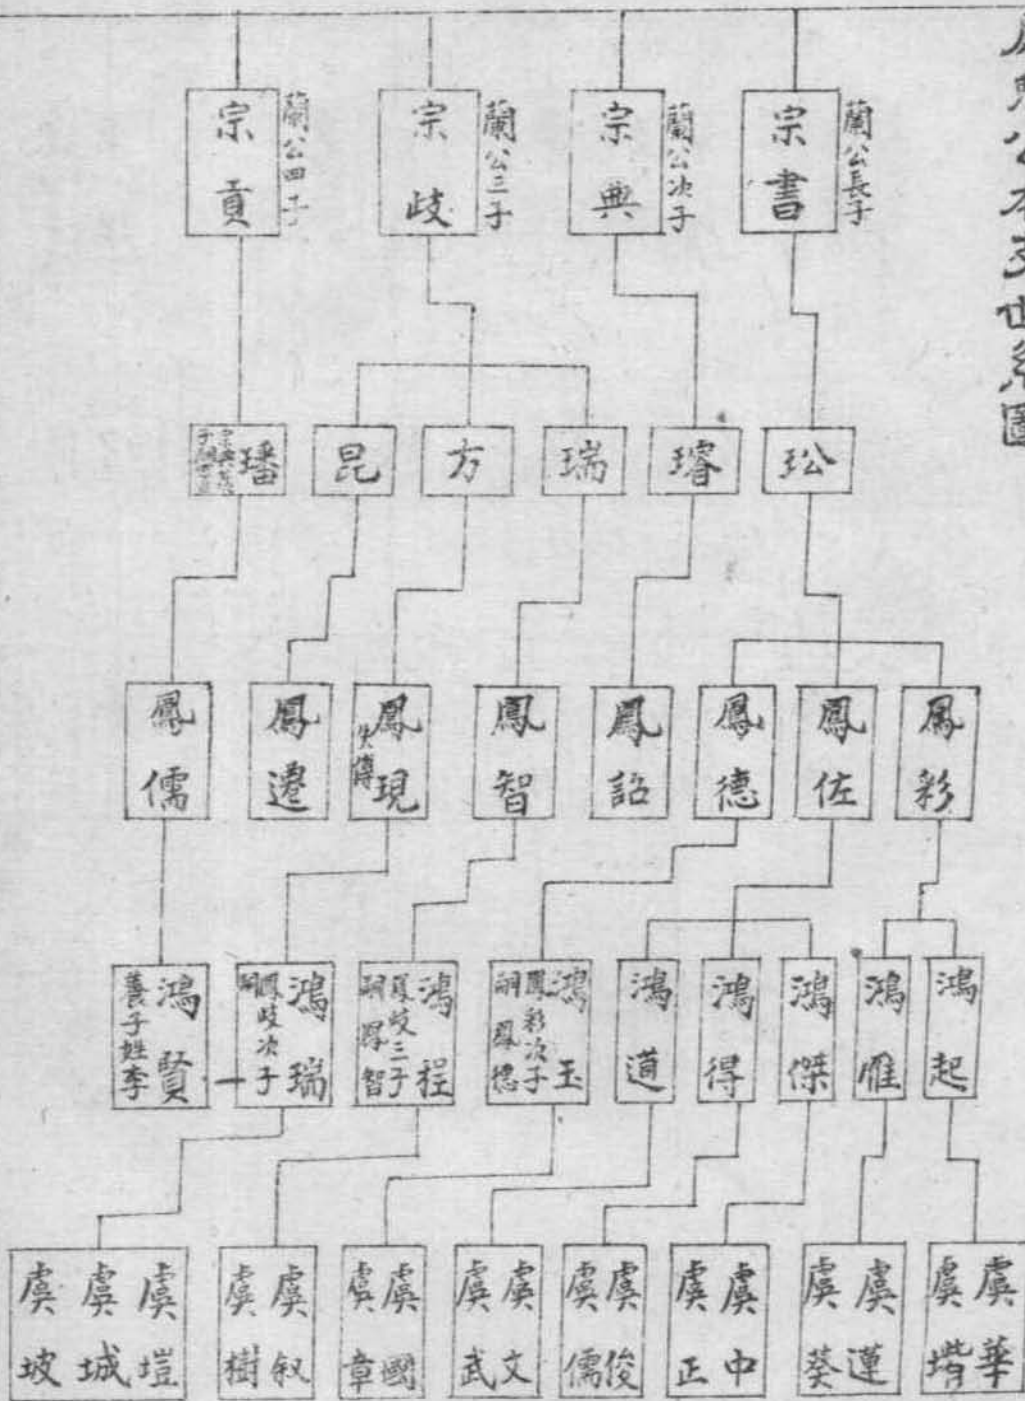 公本支世系圖
宗書
蘭公長子
宗典
蘭公次子
宗歧
蘭公三子
宗貢
蘭公四子
玜
璿
瑞
方
昆
璠
鳳彩
鳳佐
鳳德
鳳詔
鳳智
鳳現
失傳
鳳遷
鳳儒
鴻起
鴻雁
鴻傑
鴻得
鴻道
鴻玉
鳳彩次子
嗣鳳德
鴻程
鳳歧三子
嗣鳳智
鴻瑞
鳳歧次子
嗣
鴻賢
養子姓李
虞華
虞堦
虞蓮
虞葵
虞中
虞正
虞俊
虞儒
虞文
虞武
虞國
虞章
虞叙
虞樹
虞塏
虞城
虞坡